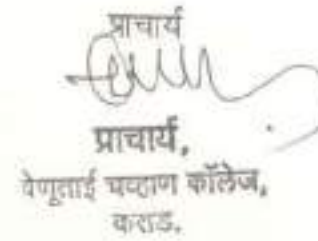 प्राचार्य
प्राचार्य,
वेणूताई चव्हाण कॉलेज,
कराड.